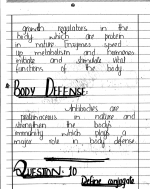 growth regulators in the
body which are protein
in nature Enzymes speed
up metabolism and hormones
initiate and stimulate vital
functions of the body.
BODY DEFENSE:
Antibodies are
proteinaceous in nature and
strengthen the body's
immunity which plays a
major role in body defense.
QUESTION: 10
Define conjugate